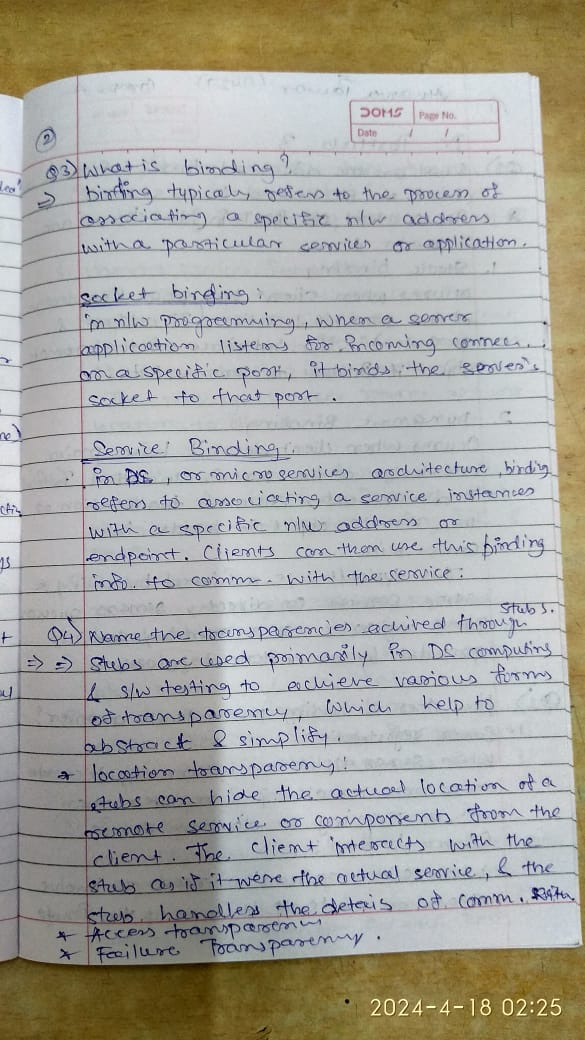 DOMS Page No.
Date / /
2
Q3) What is binding?
⇒ binding typically refers to the process of
associating a specific n/w address
with a particular services or application.
socket binding:
in n/w programming, when a server
application listens for incoming connec.
on a specific port, it binds the server's
socket to that port.
Service: Binding.
in DS, or microservices architecture, binding
refers to associating a service instances
with a specific n/w address or
endpoint. Clients can then use this binding
info. to comm. with the service:
Q4) Name the transparencies achived through stubs.
⇒ ⇒ stubs are used primarily in DS computing
& s/w testing to achieve various forms
of transparency, which help to
abstract & simplify.
* location transparency:
stubs can hide the actual location of a
remote service or components from the
client. The client interacts with the
stub as if it were the actual service, & the
stub handless the details of comm. with
* Access transparency
* Failure Transparency.
2024-4-18 02:25